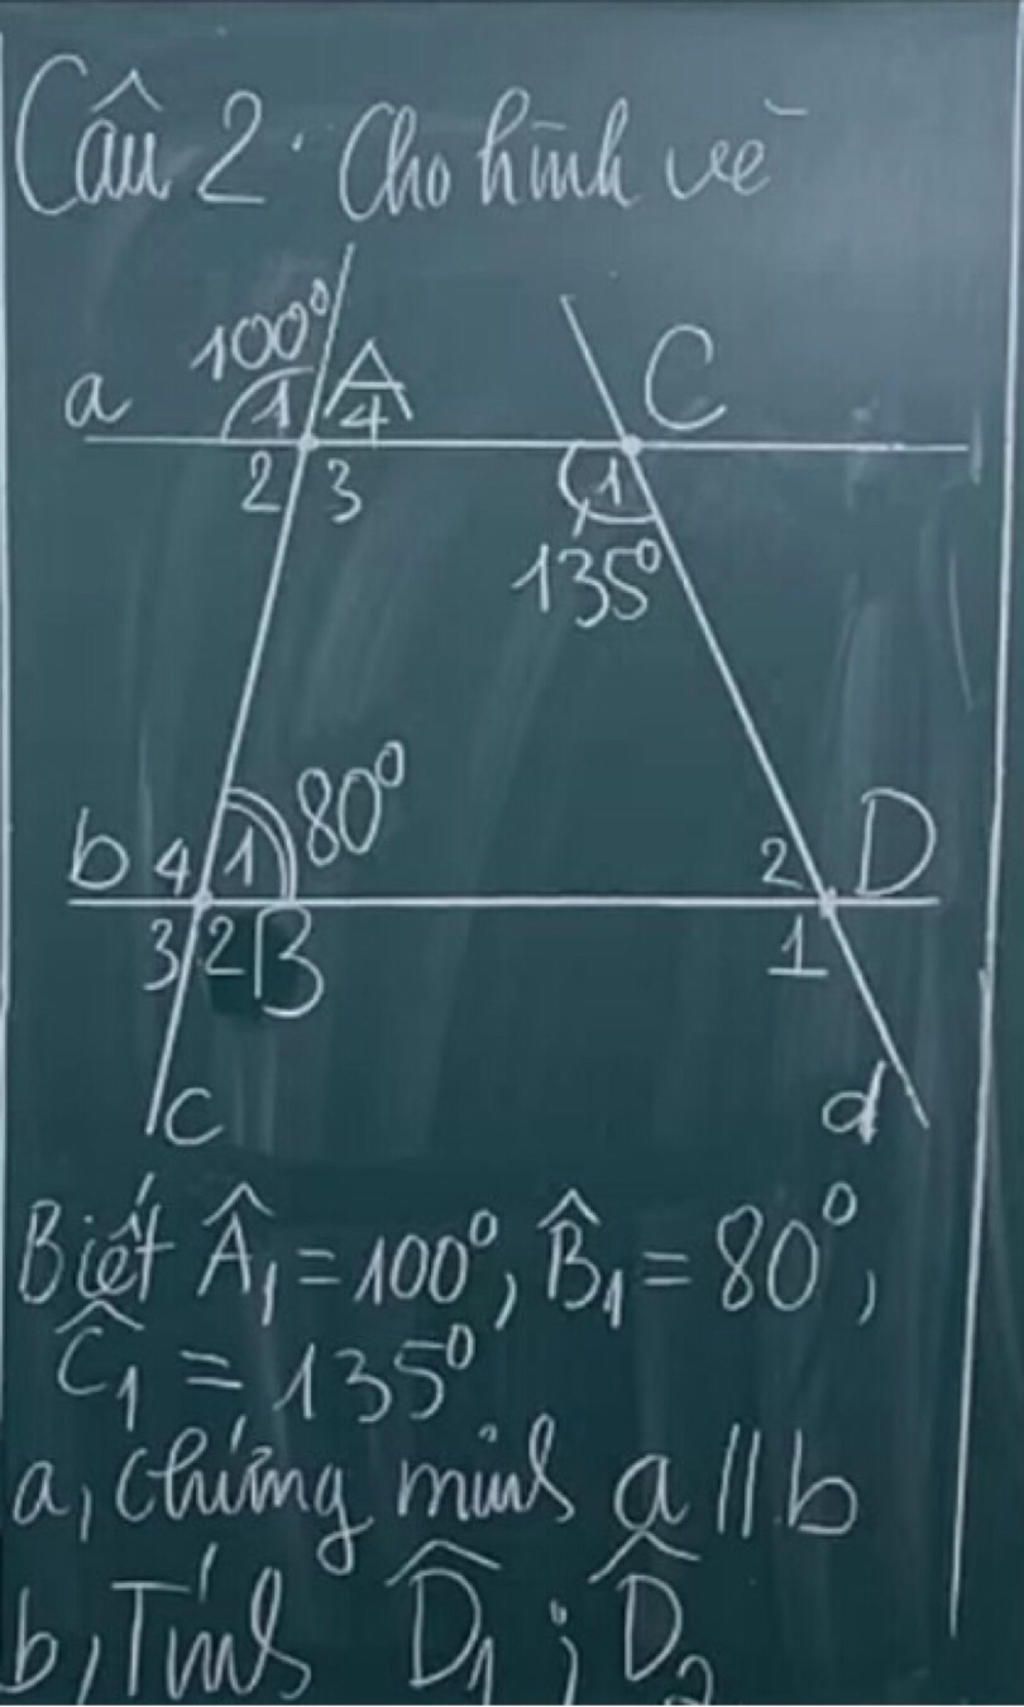 Câu 2. Cho hình vẽ
100°
a 1 A 4 C
2 3 1
135°
80°
b 4 1 2 D
3 2 B 1
c d
Biết Â₁ = 100°, B̂₁ = 80°,
Ĉ₁ = 135°
a, chứng minh a // b
b, Tính D̂₁ ; D̂₂